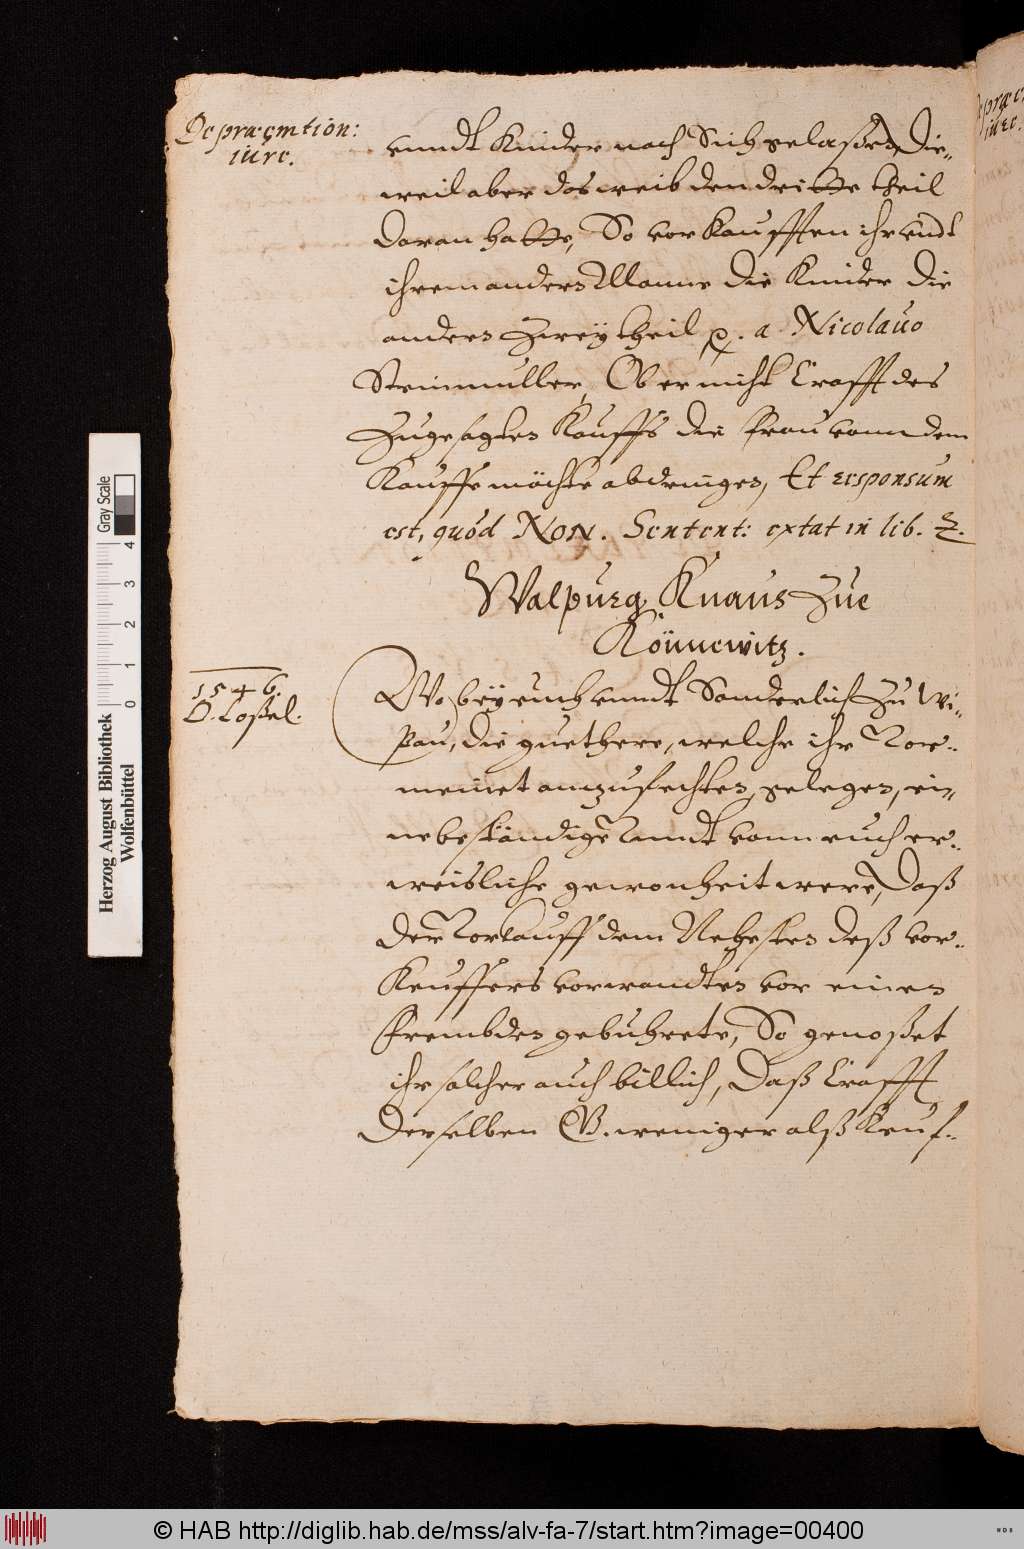 De præemtion:
iure.
unndt Kinder nach Sich gelaßen, Die-
weil aber das weib den dritte theil
daran hatte, So vorkaufften ihr undt
ihrem andern Manne die Kinder die
andern Zwey theil p. a Nicolauo
Steinmuller, Ob er nicht Crafft des
Zugesagten Kauffs die frau vonn dem
Kauffe möchte abdringen, Et responsum
est, quòd NON. Sentent: extat in lib. Z.
Walpurg Knaus Zue
Könnewitz.
1546.
D. Loßel.
Wo beÿ euch unndt Sonderlich Zu Wi-
pau, die guethere, welche ihr Vor-
meinet anzufechten, gelegen, ei-
ne bestendige Unndt vonn euch er-
weisliche gewonheit were, Daß
der Vorkauff dem Nehesten deß vor-
Keuffers vorwandten vor einen
frembden gebuhrete, So genoßet
ihr solcher auch billich, Daß Crafft
Derselben B. weniger alß Keuf-
De præe
iure.
Herzog August Bibliothek
Wolfenbüttel
Gray Scale
0 1 2 3 4
© HAB http://diglib.hab.de/mss/alv-fa-7/start.htm?image=00400